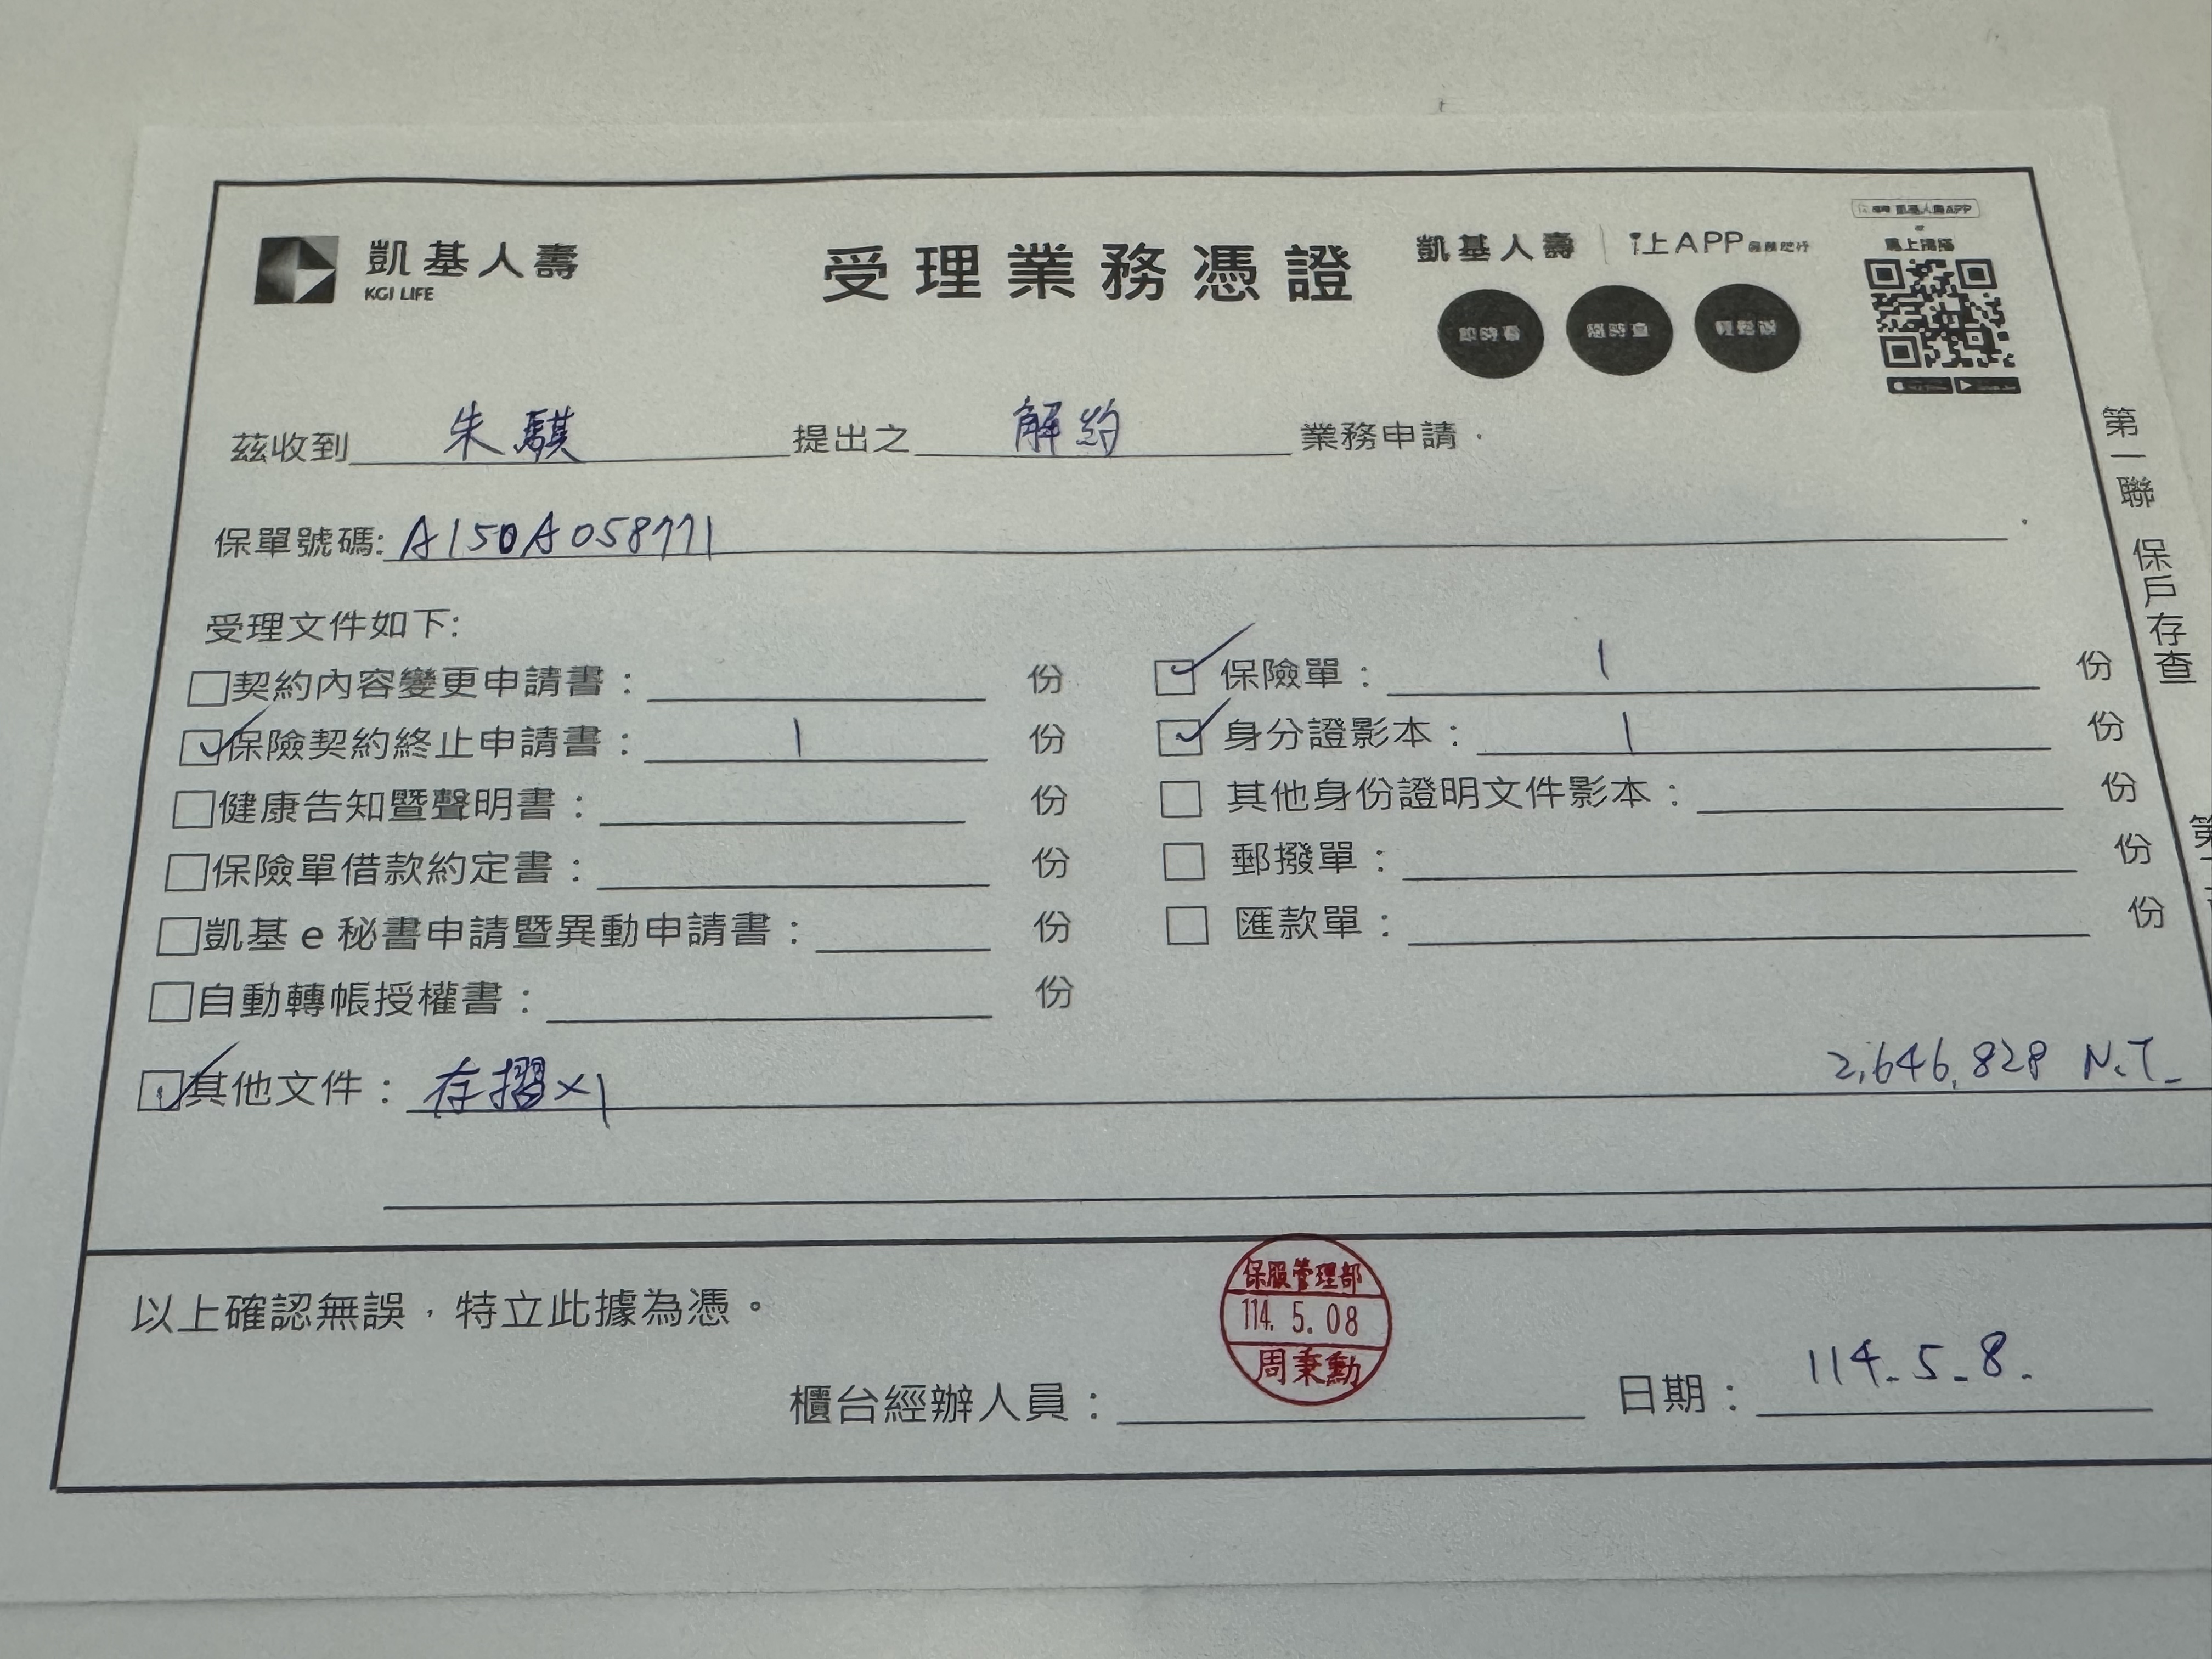 凱基人壽
KGI LIFE
受理業務憑證
凱基人壽 | i上APP
凱基人壽APP
馬上掃描
即時看 隨時查 輕鬆辦
茲收到 朱騏 提出之 解約 業務申請.
保單號碼: A150A058771
受理文件如下:
□契約內容變更申請書: 份
☑保險契約終止申請書: 1 份
□健康告知暨聲明書: 份
□保險單借款約定書: 份
□凱基e秘書申請暨異動申請書: 份
□自動轉帳授權書: 份
☑保險單: 1 份
☑身分證影本: 1 份
□其他身份證明文件影本: 份
□郵撥單: 份
□匯款單: 份
☑其他文件: 存摺×1 2,646,828 N.T.
以上確認無誤,特立此據為憑。
櫃台經辦人員:
保服管理部
114. 5. 08
周秉勳
日期: 114.5.8.
第一聯 保戶存查
第